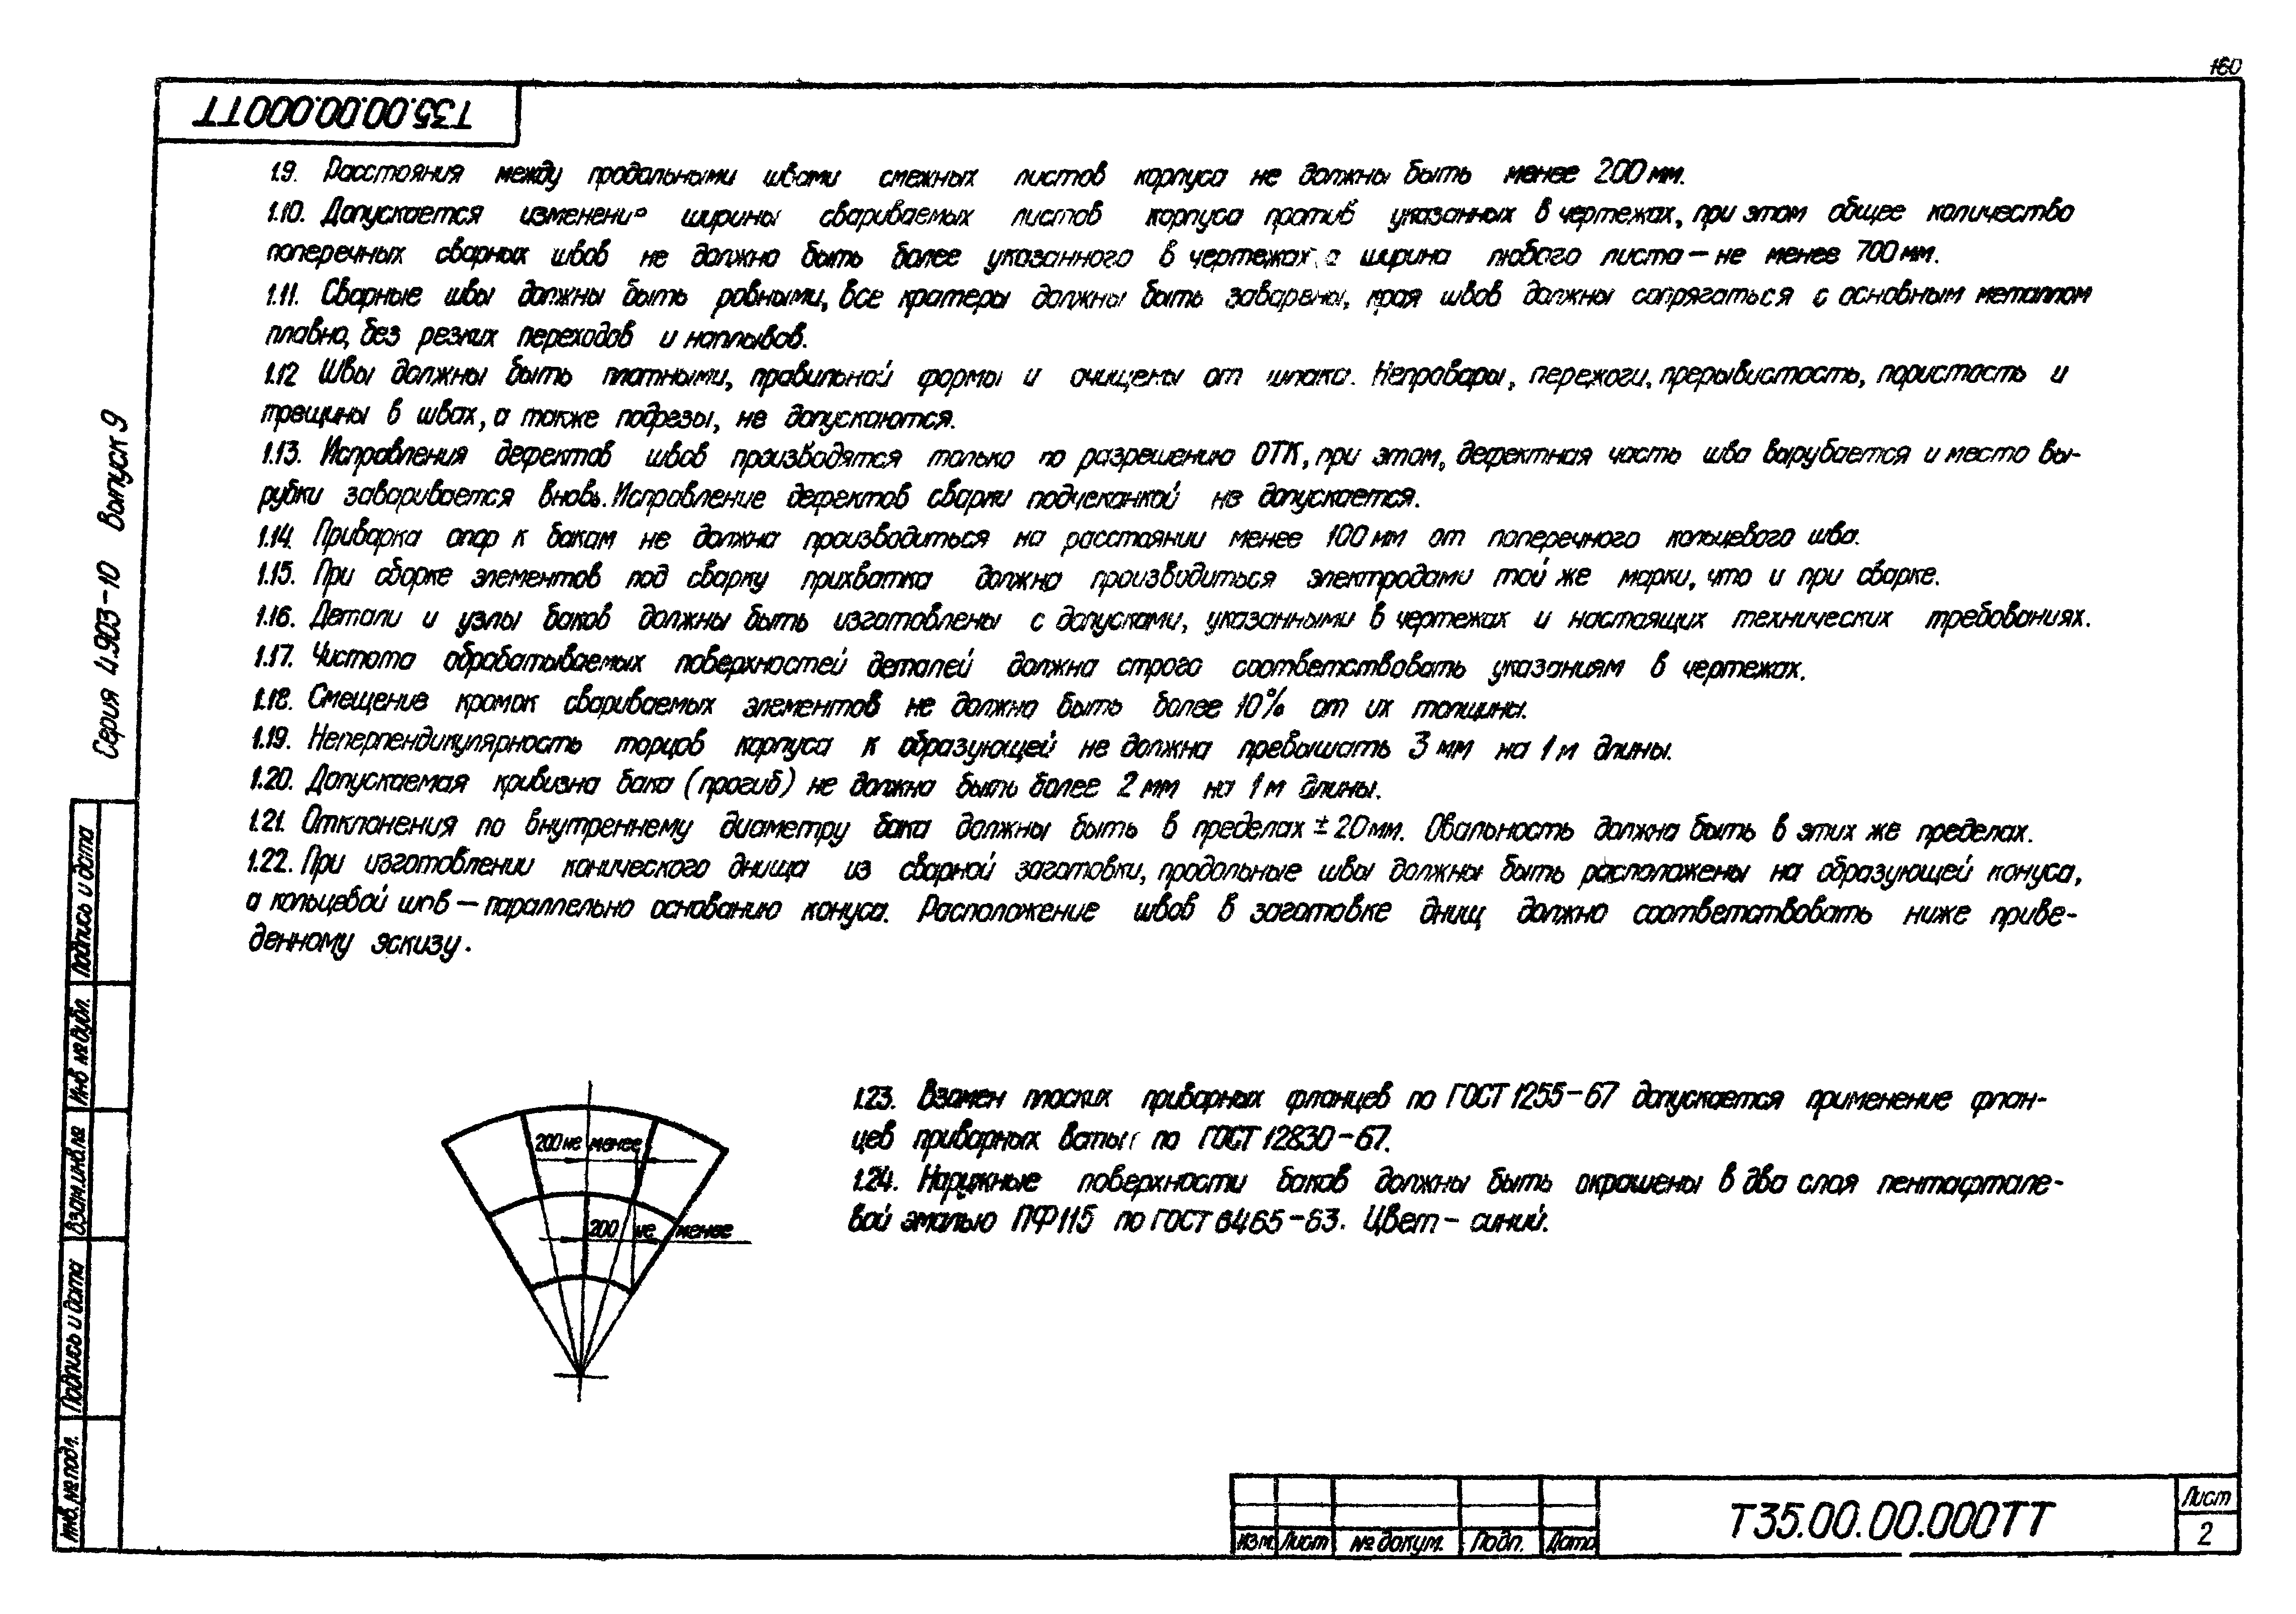 160
Т35.00.00.000ТТ
1.9. Расстояния между продольными швами смежных листов корпуса не должны быть менее 200 мм.
1.10. Допускается изменение ширины свариваемых листов корпуса против указанных в чертежах, при этом общее количество
поперечных сварных швов не должно быть более указанного в чертежах, а ширина любого листа — не менее 700 мм.
1.11. Сварные швы должны быть ровными, все кратеры должны быть заварены, края швов должны сопрягаться с основным металлом
плавно, без резких переходов и наплывов.
1.12 Швы должны быть плотными, правильной формы и очищены от шлака. Непровары, пережоги, прерывистость, пористость и
трещины в швах, а также подрезы, не допускаются.
1.13. Исправления дефектов швов производятся только по разрешению ОТК, при этом, дефектная часть шва вырубается и место вы-
рубки заваривается вновь. Исправление дефектов сварки подчеканкой не допускается.
1.14. Приварка опор к бакам не должна производиться на расстоянии менее 100 мм от поперечного кольцевого шва.
1.15. При сборке элементов под сварку прихватка должна производиться электродами той же марки, что и при сварке.
1.16. Детали и узлы баков должны быть изготовлены с допусками, указанными в чертежах и настоящих технических требованиях.
1.17. Чистота обрабатываемых поверхностей деталей должна строго соответствовать указаниям в чертежах.
1.18. Смещение кромок свариваемых элементов не должно быть более 10% от их толщины.
1.19. Неперпендикулярность торцов корпуса к образующей не должна превышать 3 мм на 1 м длины.
1.20. Допускаемая кривизна бака (прогиб) не должна быть более 2 мм на 1 м длины.
1.21. Отклонения по внутреннему диаметру бака должны быть в пределах ± 20 мм. Овальность должна быть в этих же пределах.
1.22. При изготовлении конического днища из сварной заготовки, продольные швы должны быть расположены на образующей конуса,
а кольцевой шов — параллельно основанию конуса. Расположение швов в заготовке днищ должно соответствовать ниже приве-
денному эскизу.
200 не менее
200 не менее
1.23. Взамен плоских приварных фланцев по ГОСТ 1255-67 допускается применение флан-
цев приварных встык по ГОСТ 12830-67.
1.24. Наружные поверхности баков должны быть окрашены в два слоя пентафтале-
вой эмалью ПФ115 по ГОСТ 6465-63. Цвет - синий.
Серия 4.903-10 Выпуск 9
Подпись и дата
Инв № дубл.
Взам.инв.№
Подпись и дата
Инв. № подл.
Изм. Лист № докум. Подп. Дата
Т35.00.00.000ТТ
Лист
2